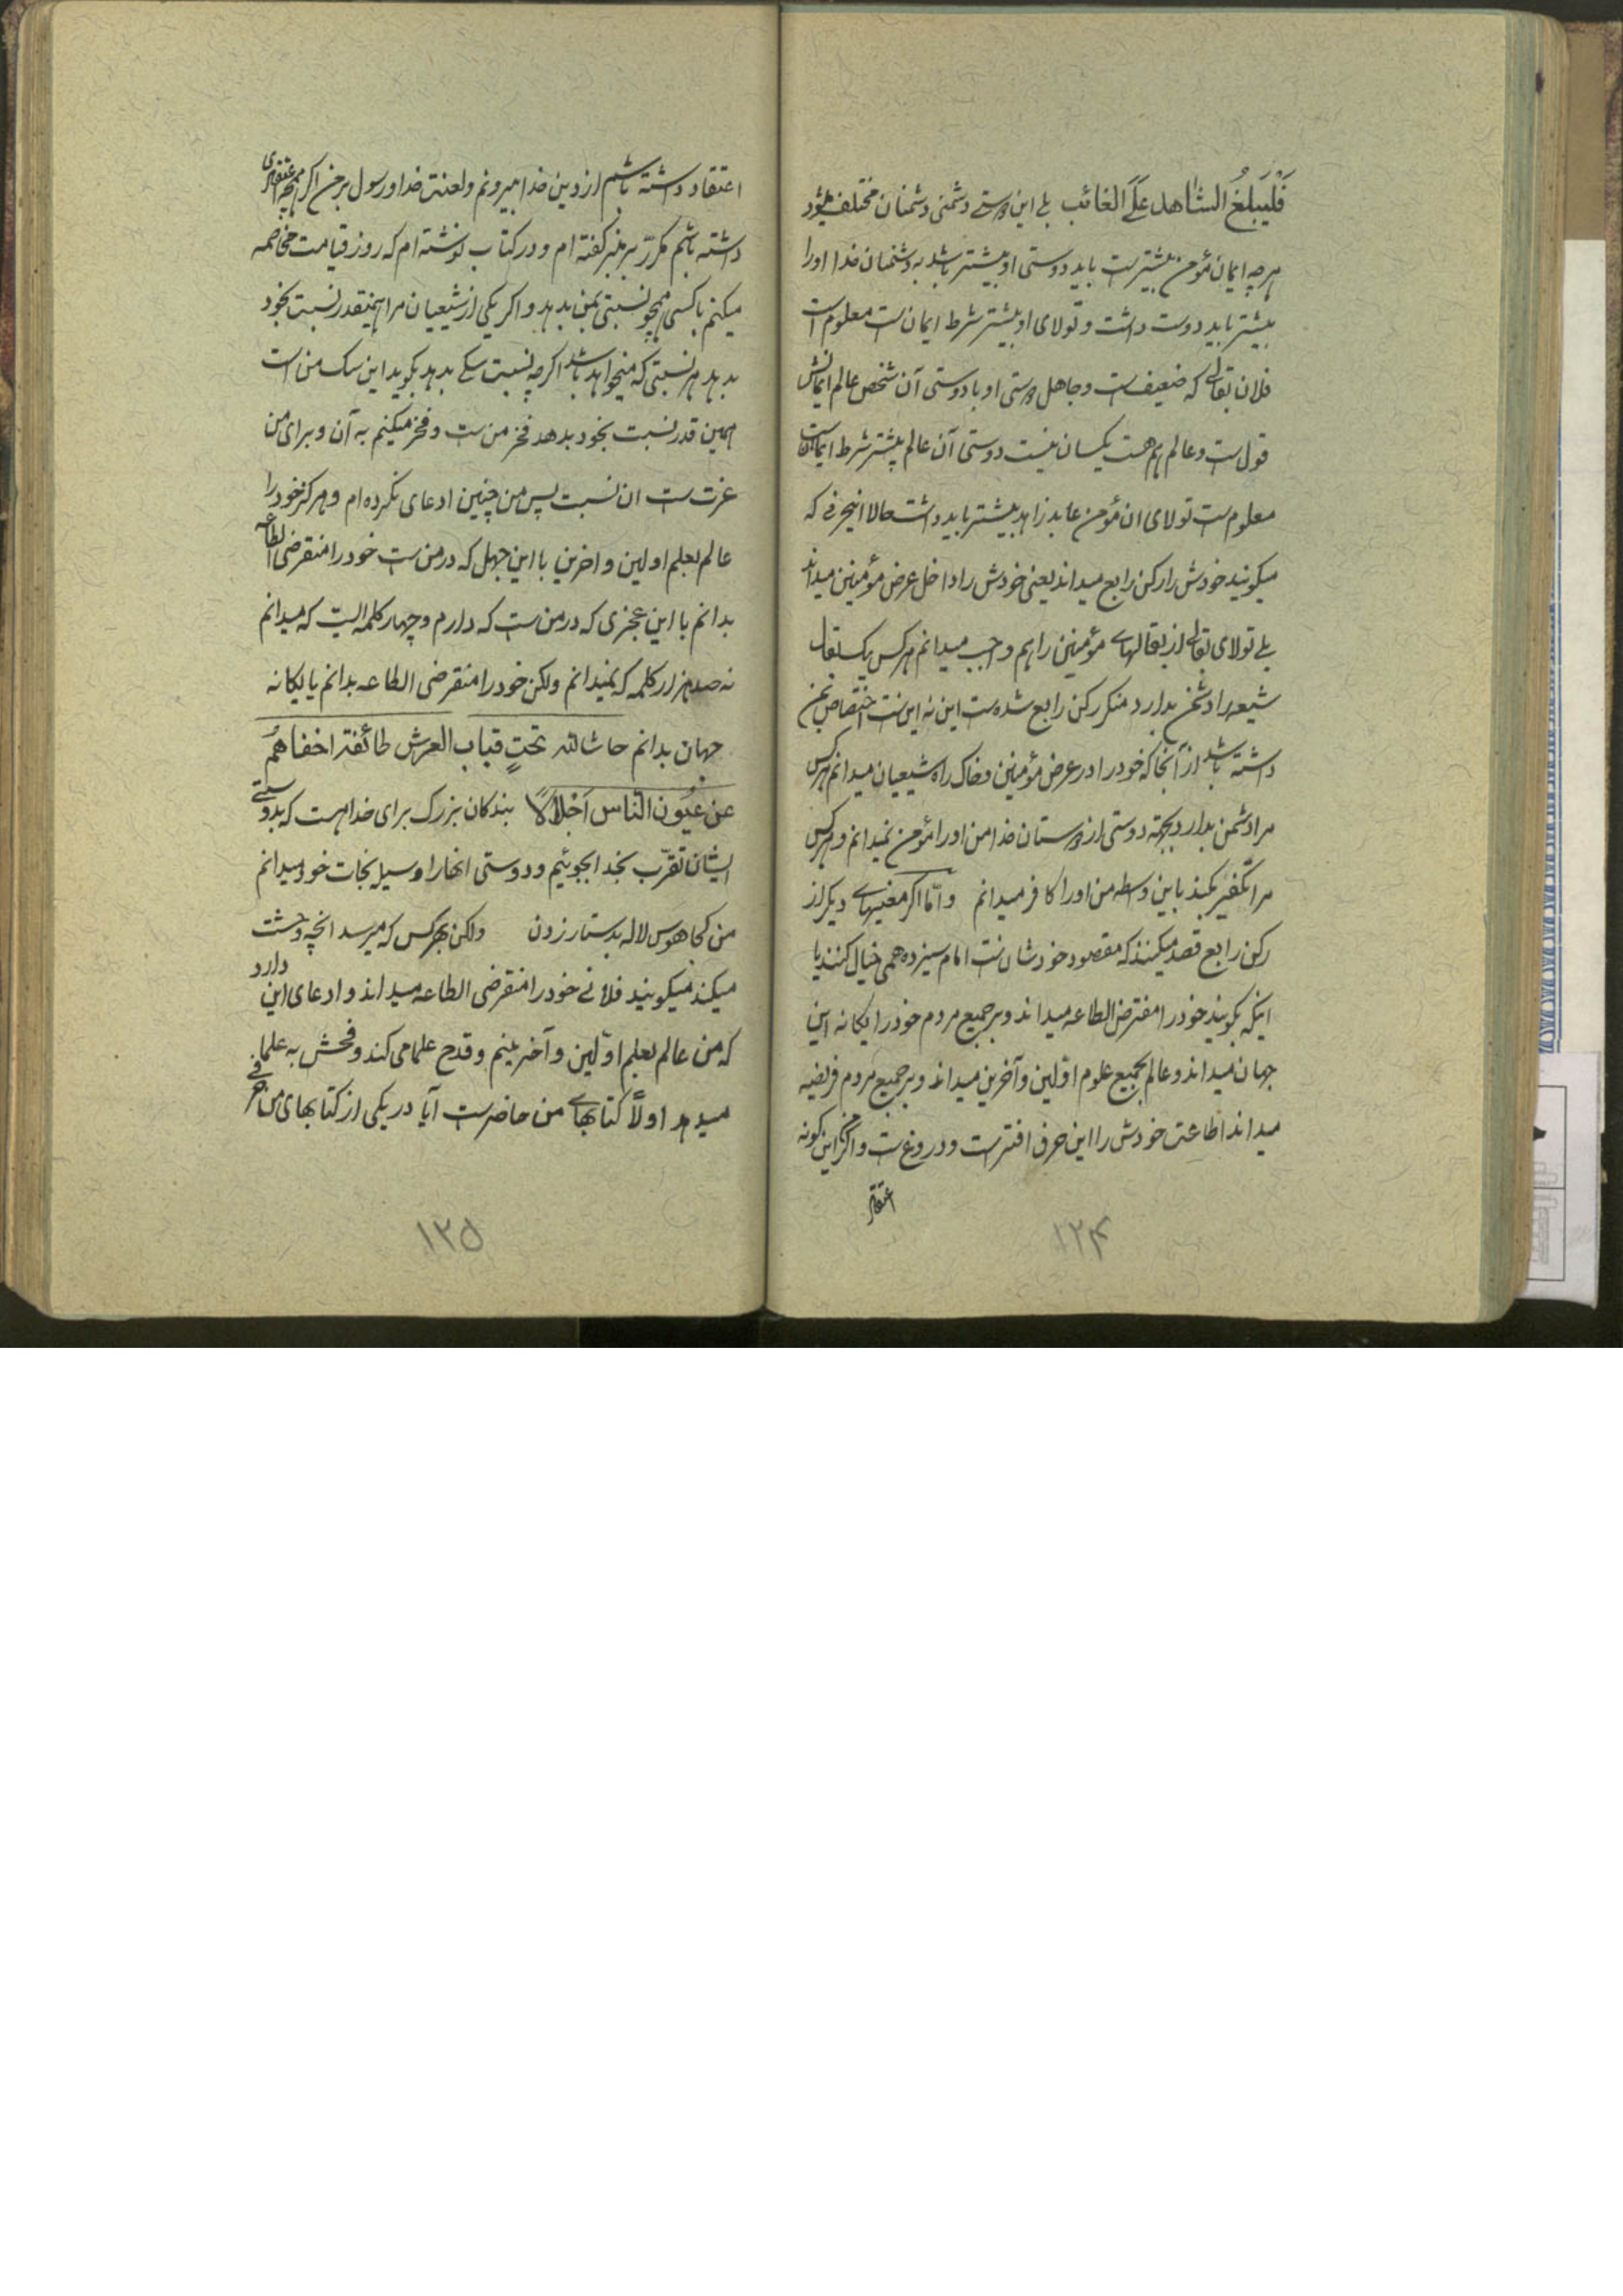 فَلْيُبَلِّغُ الشاهد عَلَى الغائب بلی این دوستی و دشمنی دشمنان مختلف میشود
هرچه ایمان مؤمن بیشتر است باید دوستی او بیشتر باشد به دشمنان خدا او را
بیشتر باید دوست داشت و تولای او بیشتر شرط ایمان است معلوم است
فلان بقال که ضعیف است و جاهل دوستی او با دوستی آن شخص عالم ایمانش
قول است و عالم هم هست یکسان نیست دوستی آن عالم بیشتر شرط ایمان است
معلوم است تولای ان مؤمن عابد زاهد بیشتر باید داشت حالا اینحرفی که
میکویند خودش را رکن رابع میداند یعنی خودش را داخل عرض مؤمنین میداند
بلی تولای بقالی از بقالهای مؤمنین را هم واجب میدانم هرکس یک بقال
شیعه را دشمن بدارد منکر رکن رابع شده است این نه این است اختصاص بمن
داشته باشد از آنجا که خود را در عرض مؤمنین و خاک راه شیعیان میدانم هرکس
مرا دشمن بدارد بجهته دوستی از دوستان خدا من او را مؤمن نمیدانم و هرکس
مرا تکفیر بکند باین واسطه من او را کافر میدانم و امّا اکر معنیهای دیکر از
رکن رابع قصد میکنند که مقصود خودشان است امام سیزدهمی خیال کنند یا
اینکه بکویند خود را مفترض الطاعه میداند و بر جمیع مردم خود را یکانه این
جهان میداند و عالم بجمیع علوم اوّلین و آخرین میداند و بر جمیع مردم فریضه
میداند اطاعت خودش را این حرف افتراست و دروغ است و اکر من این کونه
اعتقاد
۱۲۴
اعتقاد داشته باشم از دین خدا بیرونم و لعنت خدا و رسول بر من اکر همچه اعتقادی
داشته باشم مکرّر بر منبر کفته ام و در کتاب نوشته ام که روز قیامت مخاصمه
میکنم با کسی همچو نسبتی بمن بدهد و اکر یکی از شیعیان مرا همینقدر نسبت بخود
بدهد هر نسبتی که میخواهد باشد اکرچه نسبت سکی بدهد بکوید این سک من است
همین قدر نسبت بخود بدهد فخر من است و فخر میکنم به آن و برای من
عزت است ان نسبت پس من چنین ادعای نکرده ام و هرکز خود را
عالم بعلم اولین و اخرین با این جهل که در من است خود را منقرضی الطاعه
بدانم با این عجزی که در من است که دارم و چهار کلمه الیت که میدانم
نه صد هزار کلمه که نمیدانم ولکن خود را منقرضی الطاعه بدانم یا یکانه
جهان بدانم حاشا لله تحتِ قباب العرش طائفة اخفاهُمُ
عن عُیُون الناس اَجْلالاً بندکان بزرک برای خدا هست که بدوستی
ایشان تقرّب بخدا بجوئیم و دوستی انها را وسیله نجات خود میدانم
من کجا هوس لاله بدستار زدن ولکن بهرکس که میرسد انچه وحشت
میکند میکویند فلانی خود را منقرضی الطاعه میداند و ادعای این دارد
که من عالم بعلم اوّلین و آخرینم و قدح علما می کند و فحش به علما
میدهد اولاً کتابهای من حاضر است آیا در یکی از کتابهای من حرفی
۱۲۵